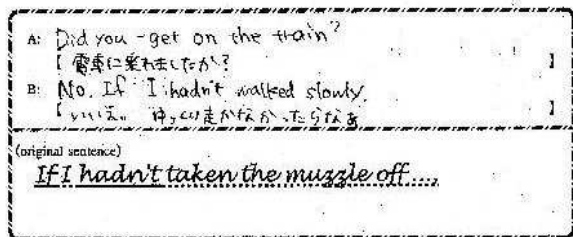 A: Did you get on the train?
【 電車に乗れましたか? 】
B: No. If I hadn't walked slowly.
【 いいえ。 ゆっくり走かなかったらなあ 】
(original sentence)
If I hadn't taken the muzzle off...,